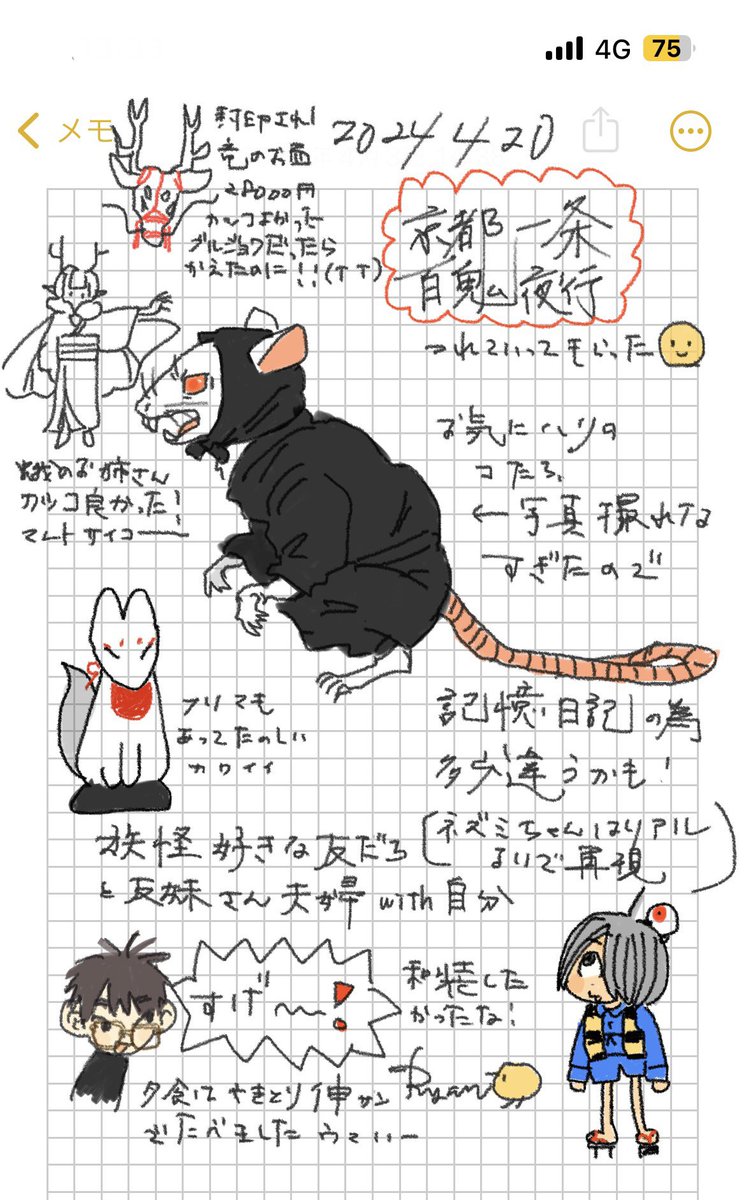 4G 75
メモ
2024 4 20
封印され
竜のお面
28000円
カッコよかった
ブルジョワだったら
かえたのに!!(TT)
京都一条
百鬼夜行
つれていってもらった
お気に入りの
コたち
←写真撮れな
すぎたので
お姉さん
カッコ良かった!
マントサイコーー
フリマも
あってたのしい
カワイイ
記憶日記の為
多少違うかも!
(ネズミちゃんはリアル
よりで再現)
妖怪好きな友だち
と友妹さん夫婦with自分
すげ〜!
和装した
かったな!
夕食はやきとり伸サン
でたべましたウマいー
Ryan